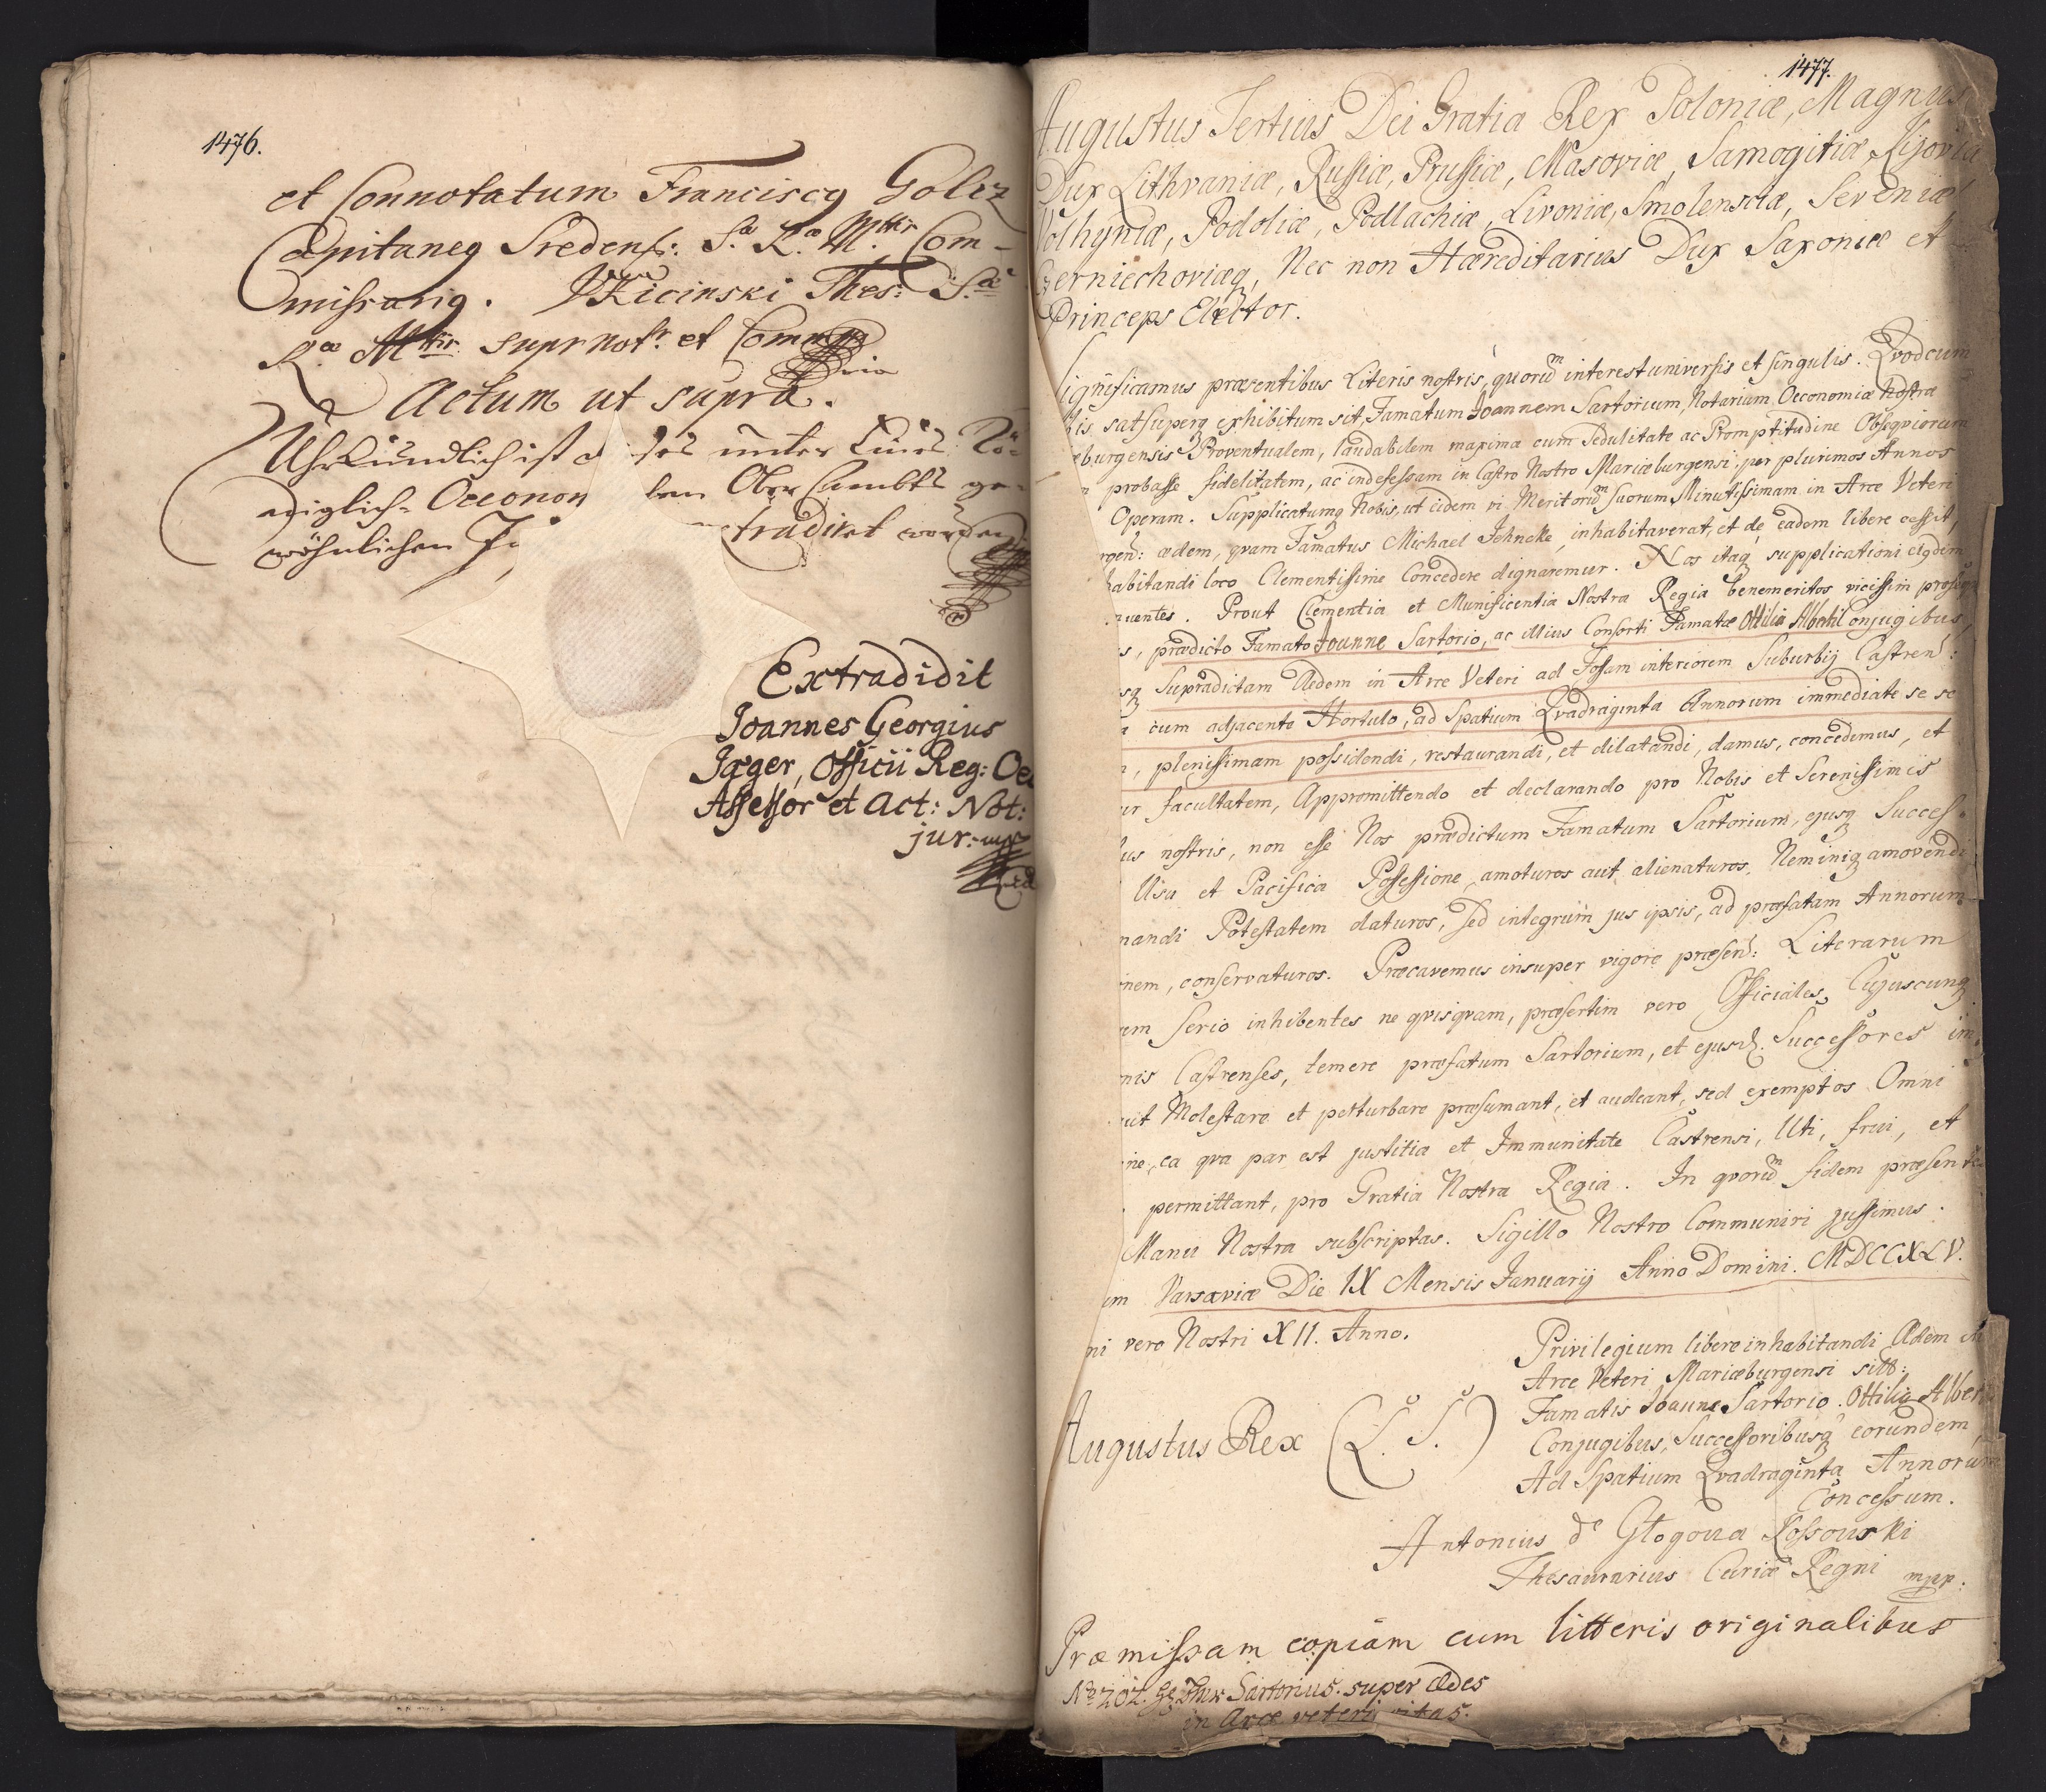 1476.
et Connotatum Franciscq Goltz
Capitaneq Sredens: S.æ R.æ M.ttis Com-
missariq. Kicinski Thes: S.æ
R.æ M.ttis supr not: et Commiss
Actum ut supra.
Uhrkundlich ist unter Eines Kö-
niglich- Oeconom Ober Saambts ge-
wöhnlichen extradiret worden
Extradidit
Joannes Georgius
Jæger, Officii Reg: Oec
Assessor et Act: Not:
jur: mp
1477.
Augustus Tertius Dei Gratia Rex Poloniæ, Magnus
Dux Lithvaniæ, Russiæ, Prussiæ, Masoviæ, Samogitiæ, Kijoviæ
Volhyniæ, Podoliæ, Podlachiæ, Livoniæ, Smolensciæ, Severiæ
Czerniechoviæq, Nec non Hæreditarius Dux Saxoniæ et
Princeps Elector.
Significamus præsentibus Literis nostris, quorũm interest universis et singulis. Qvod cum
bis satsuperq exhibitum sit, Famatum Joannem Sartorium, Notarium Oeconomiæ Nostræ
burgensis Proventualem, laudabilem maxima cum Sedulitate ac Promptitudine Obseqviorum
probasse fidelitatem, ac indefessam in Castro Nostro Mariæburgensi per plurimos Annos
Operam. Supplicatumq Nobis, ut eidem vi Meritorũm suorum Minutissimam in Arce Veteri
rgen: ædem, qvam Famatus Michael Jehncke inhabitaverat, et de eadem libere cessit,
habitandi loco Clementissime Concedere dignaremur. Nos itaq supplicationi ejqdem
nuentes. Prout Clementia et Munificentia Nostra Regia benemeritos vicissim proseq
s, prædicto Famato Joanne Sartorio, ac illius Consorti Famatæ Ottilia Alberti Conjugibus,
sq Supradictam Ædem in Arce Veteri ad Fossam interiorem Suburbij Castren:
cum adjacente Hortulo, ad Spatium Qvadraginta Annorum immediate se se
, plenissimam possidendi, restaurandi, et dilatandi, damus, concedimus, et
ur facultatem, Appromittendo et declarando pro Nobis et Serenissimis
us nostris, non esse Nos prædictum Famatum Sartorium, ejusq Succes-
Usu et Pacifica Possessione, amoturos aut alienaturos, Neminiq amovendi
nandi Potestatem daturos, Sed integrum jus ipsis, ad præfatam Annorum
nem, conservaturos. Præcavemus insuper vigore præsen: Literarum
em Serio inhibentes ne qvisqvam, præsertim vero Officiales Cujuscunq
nis Castrenses, temere præfatum Sartorium, et ejusd. Successores im
it Molestare et perturbare præsumant, et audeant, sed exemptos Omni
ne, ea qva par est justitia et Immunitate Castrensi, Uti, frui, et
permittant, pro Gratia Nostra Regia. In qvorũm fidem præsentes
Manu Nostra subscriptas. Sigillo Nostro Communiri jussimus.
m Varsaviæ Die IX Mensis Januarij Anno Domini. MDCCXLV.
ni vero Nostri XII. Anno.
Privilegium libere inhabitandi Ædem in
Arce Veteri Mariæburgensi sitt:
Famatis Joanne Sartorio. Ottilia Albert
Conjugibus, Successoribusq eorundem,
Ad Spatium Qvadraginta Annorum
Concessum.
Augustus Rex (L. S.)
Antonius de Głogowa Kossowski
Thesaurarius Curiæ Regni mpp:
Præmissam copiam cum litteris originalibus
No 202. Sartorius. super ædes
in Arce veteri sitas.